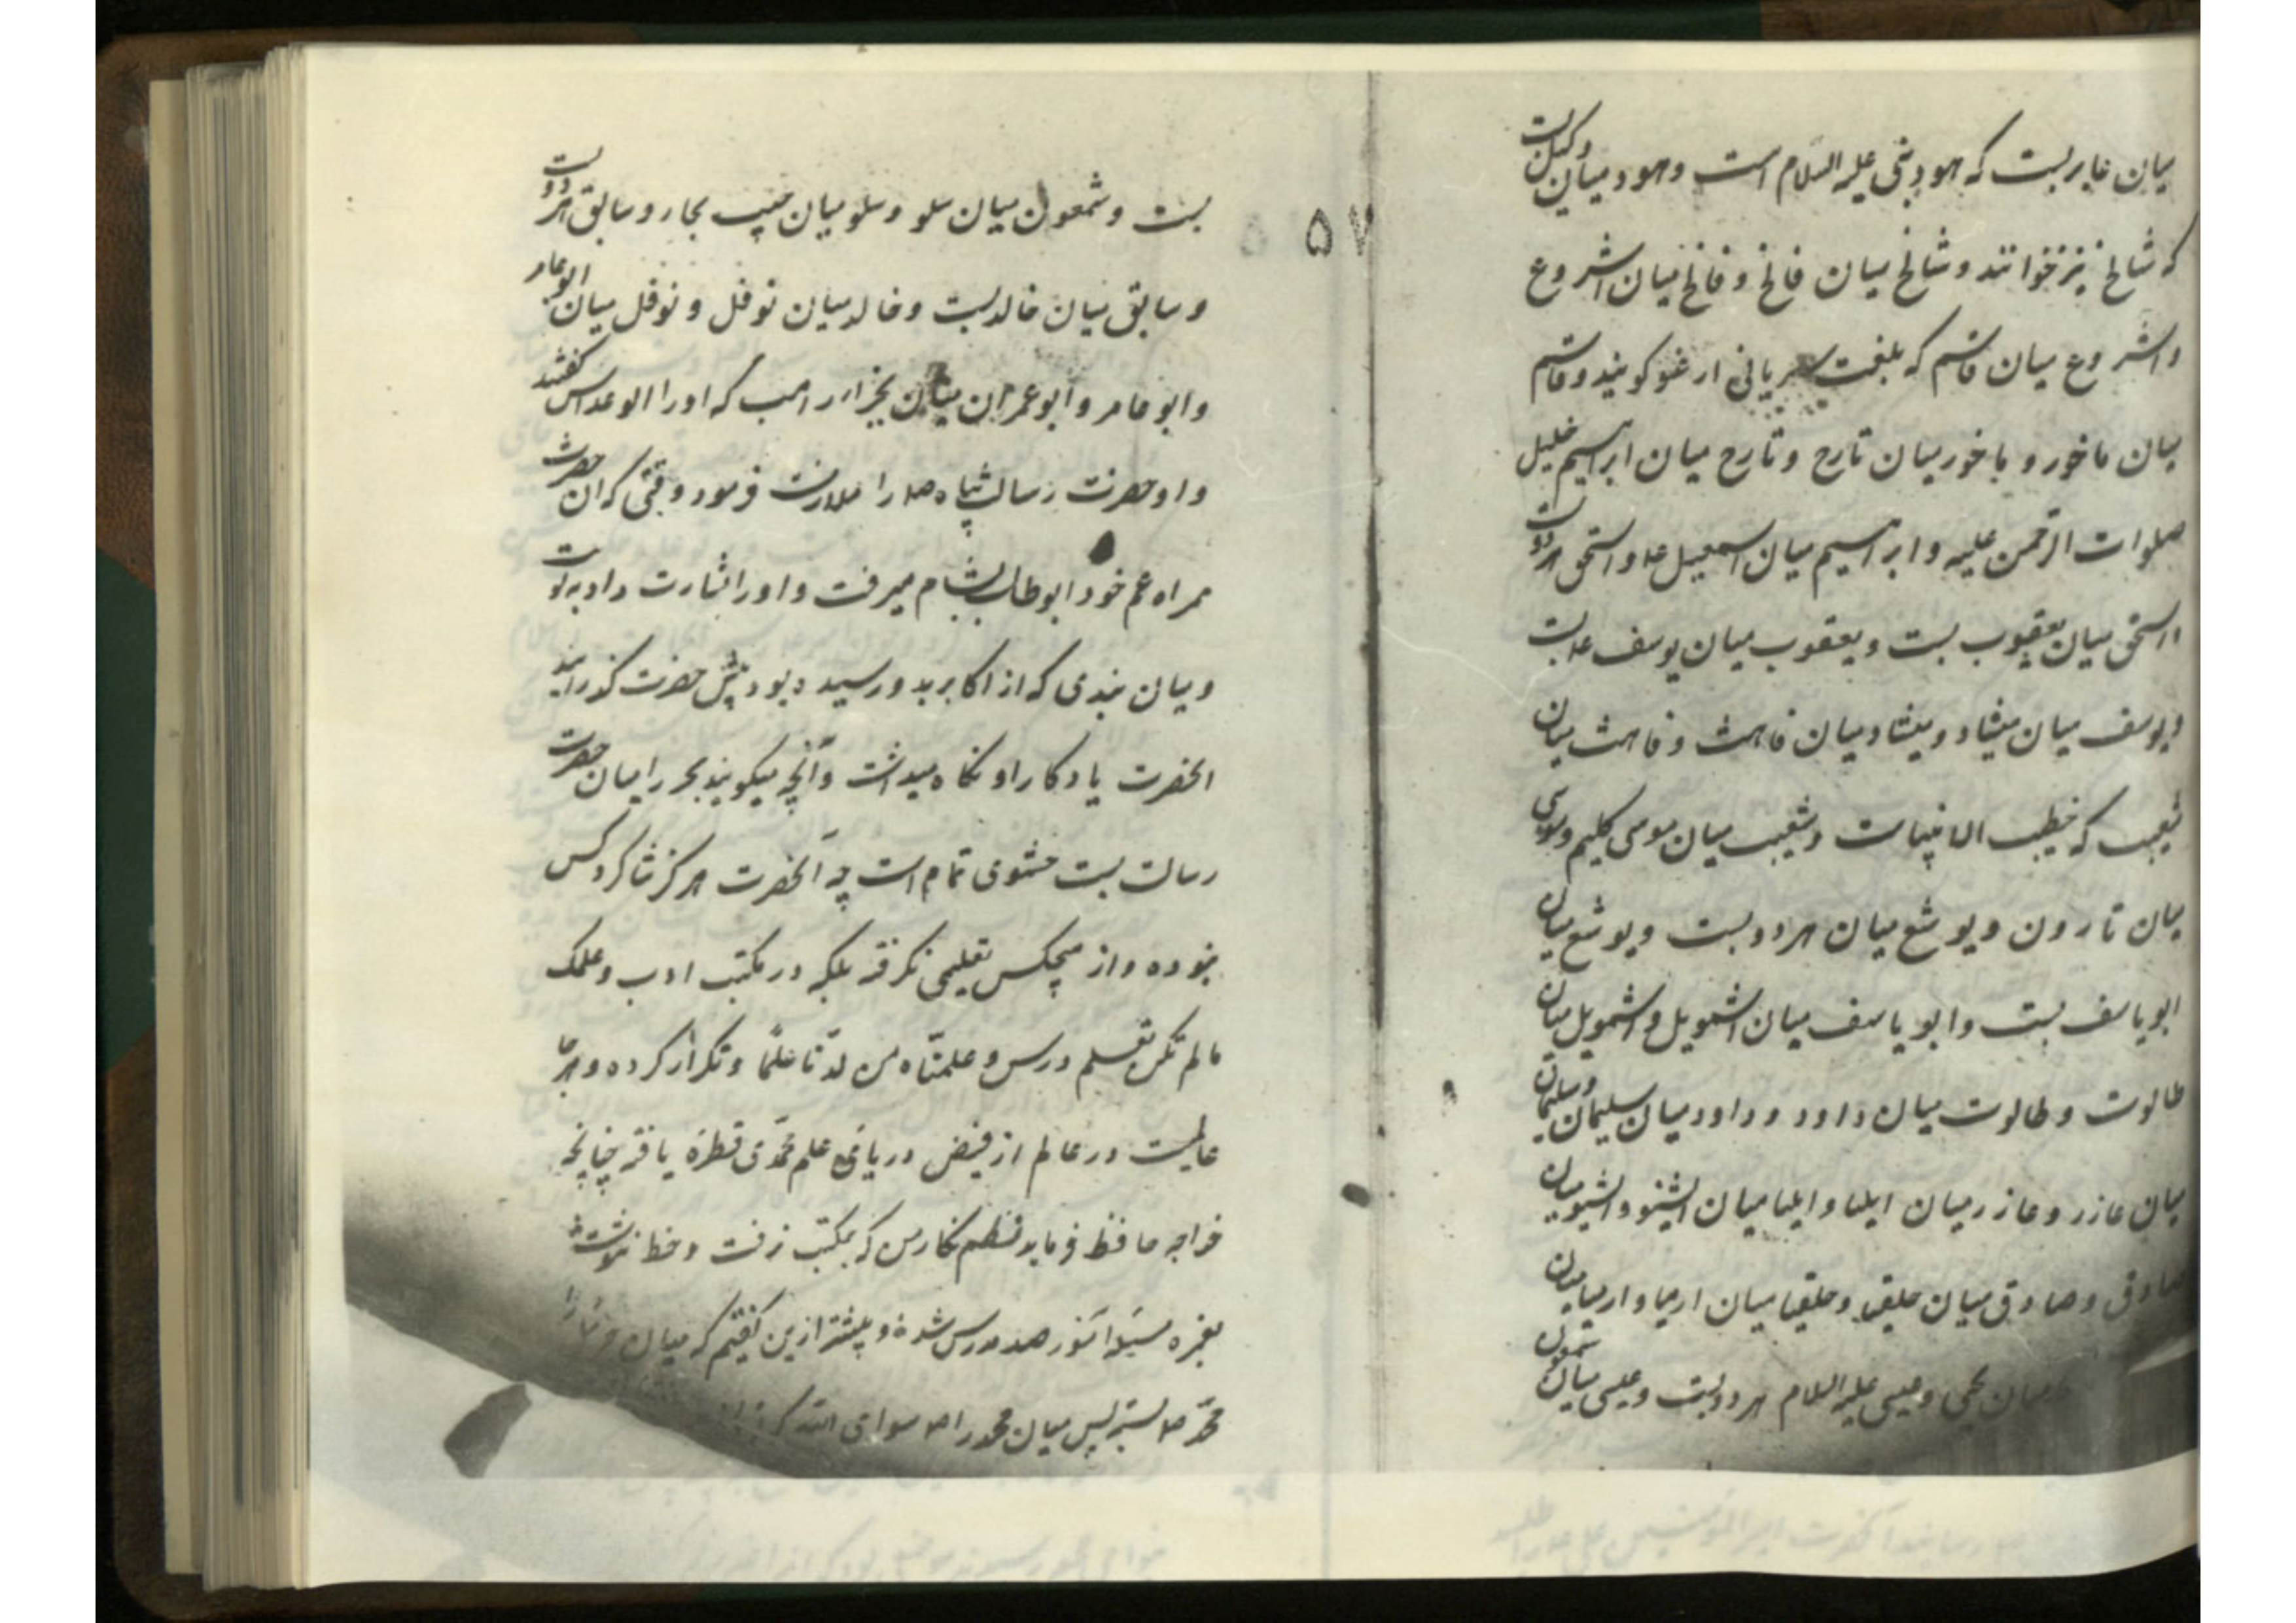 میان عابر بست که هود نبی علیه السلام است و هود میان وکیل بست
که شالخ نیز خوانند و شالخ میان فالخ و فالخ میان اشروع
و اشروع میان قاسم که بلغت سریانی ارغو کویند و قاسم
میان ماخور و ماخور میان تارح و تارح میان ابراهیم خلیل
صلوات الرحمن علیه و ابراهیم میان اسمعیل ع و اسحق هر دو بست
و اسحق میان یعقوب بست و یعقوب میان یوسف ع بست
و یوسف میان میشاد و میشاد میان فاهث و فاهث میان
شعیب که خطیب الانبیاست و شعیب میان موسی کلیم و موسی
میان قارون و یوشع میان هر دو بست و یوشع میان
ابویاسف بست و ابویاسف میان اشمویل و اشمویل میان
طالوت و طالوت میان داود و داود میان سلیمان و سلیمان
میان عازر و عازر میان ایلیا و ایلیا میان الیشو و الیشو میان
صادق و صادق میان حلقیا و حلقیا میان ارمیا و ارمیا میان
میان یحیی و عیسی علیه السلام هر دو بست و عیسی میان شمعون
۵۷
بست و شمعون میان سلو و سلو میان حبیب نجار و سابق هر دو بست
و سابق میان خالد بست و خالد میان نوفل و نوفل میان ابو عامر
و ابو عامر و ابو عمران میان بحیرا راهب که او را ابو عداس کفتند
و او حضرت رسالت پناه صلعم را ملازمت فرمود وقتی که ان حضرت
همراه عم خود ابوطالب بشام میرفت و او را بشارت داد به نبوت
و میان بندی که از اکابر بدو رسیده بود پیش حضرت کذرانید
انحضرت یادکار او نکاه میداشت و آنچه میکویند بحیرا میان حضرت
رسالت بست حشوی تمام است چه آنحضرت هرکز شاکرد کس
نبوده و از هیچکس تعلیمی نکرفته بلکه در مکتب ادب و علمک
مالم تکن تعلم درس و علمناه من لدنا علما و تکرار کرده و هرجا
عالمیست در عالم از فیض دریای علم محمدی قطره یافته چنانچه
خواجه حافظ فرماید نظم نکار من که بمکتب نرفت و خط ننوشت
بغمزه مسئله آموز صد مدرس شد و پیشتر ازین کفتیم که میان
محمد صلعم بست پس میان محمد را صلعم سوای الله